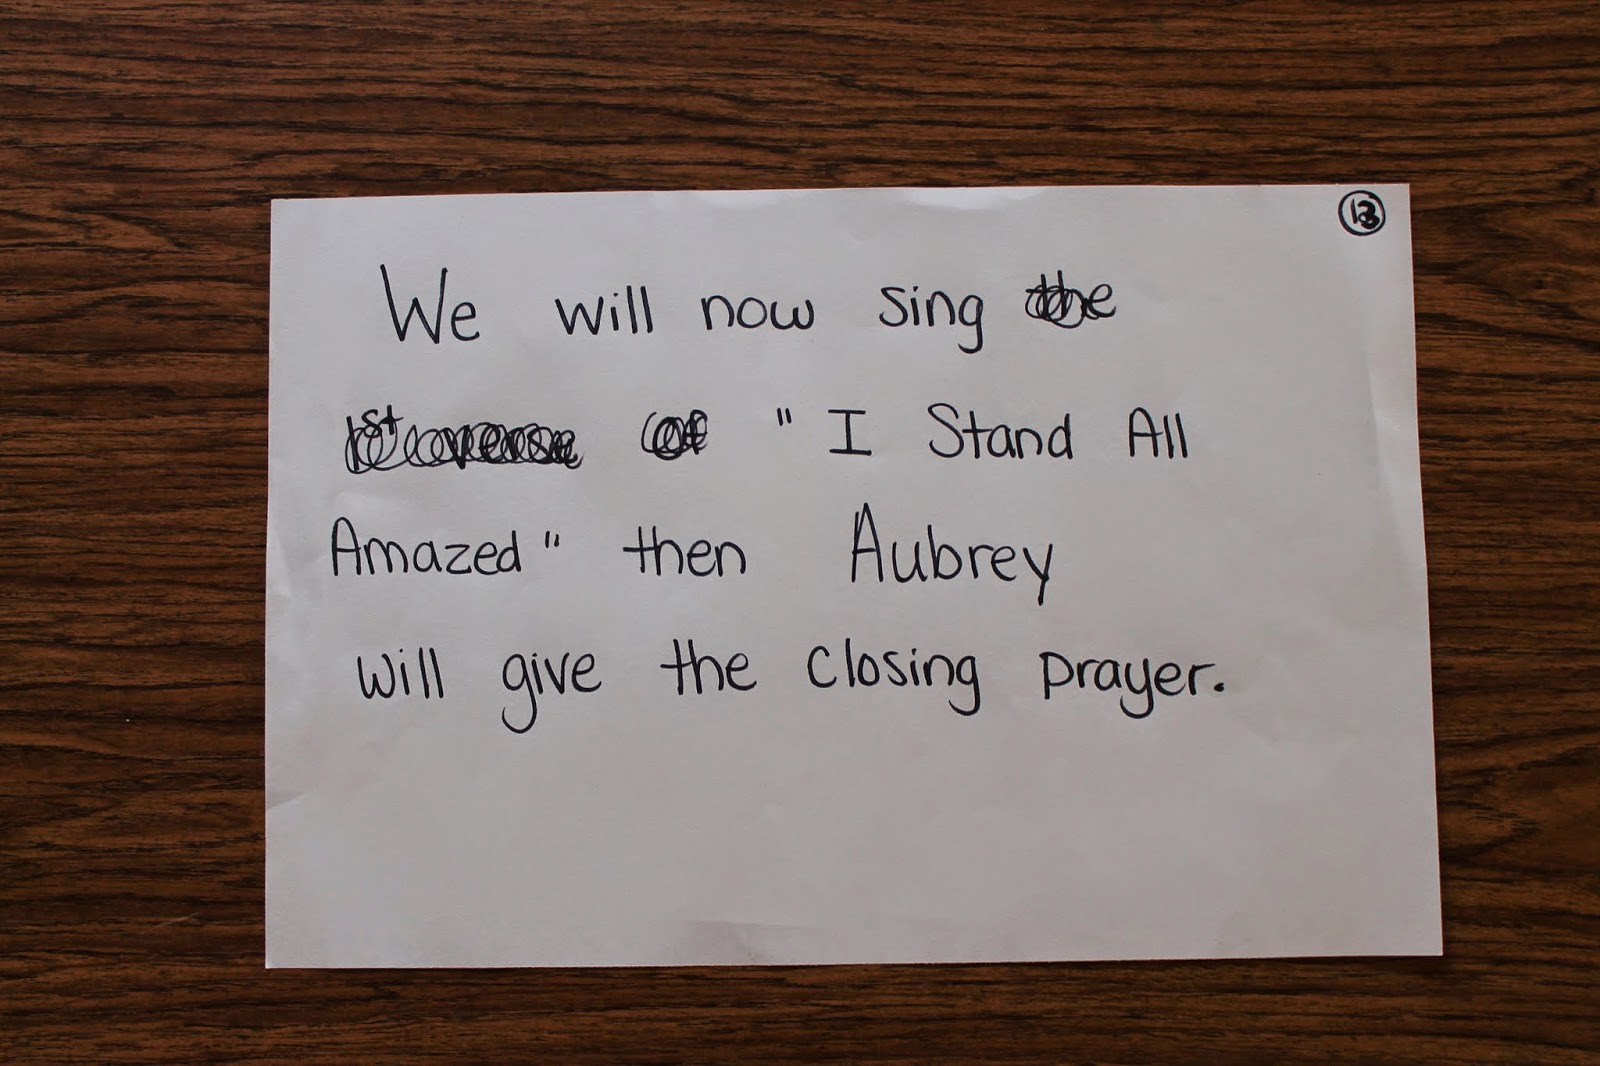 13
We will now sing the
1st verse of "I Stand All
Amazed" then Aubrey
will give the closing prayer.